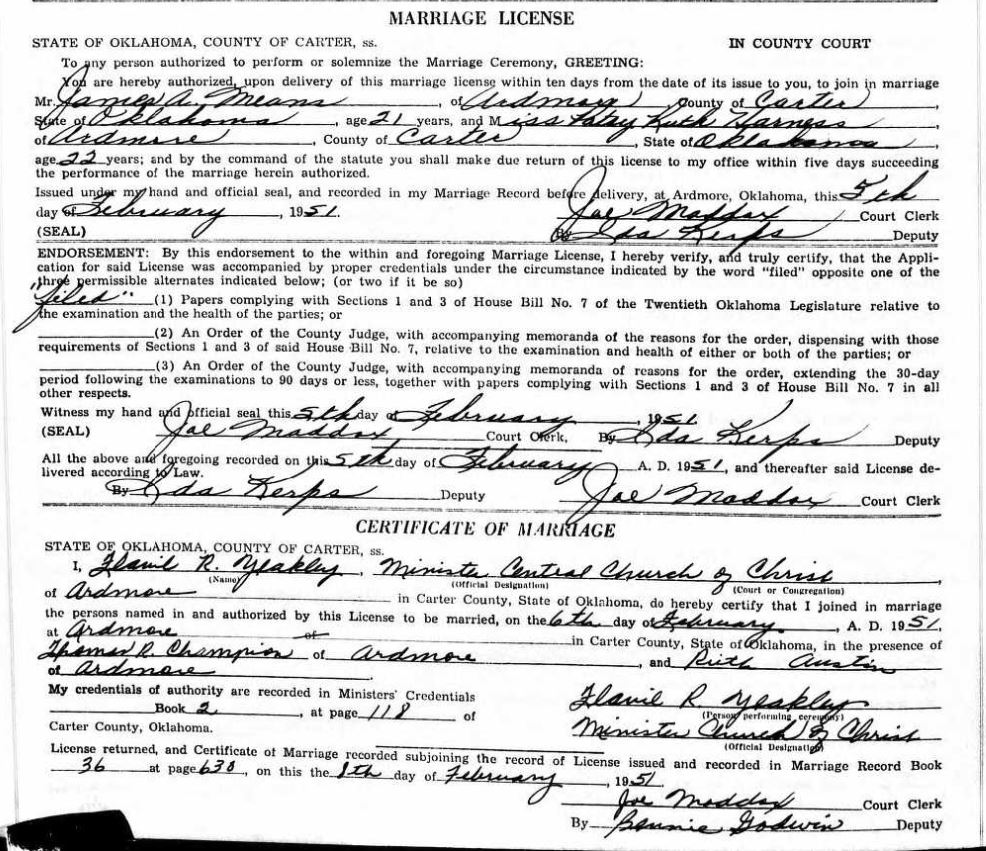 MARRIAGE LICENSE
STATE OF OKLAHOMA, COUNTY OF CARTER, ss. IN COUNTY COURT
To any person authorized to perform or solemnize the Marriage Ceremony, GREETING:
You are hereby authorized, upon delivery of this marriage license within ten days from the date of its issue to you, to join in marriage
Mr. James A. Means, of Ardmore, County of Carter,
State of Oklahoma, age 21 years, and Miss Patsy Ruth Harness
of Ardmore, County of Carter, State of Oklahoma,
age 22 years; and by the command of the statute you shall make due return of this license to my office within five days succeeding
the performance of the marriage herein authorized.
Issued under my hand and official seal, and recorded in my Marriage Record before delivery, at Ardmore, Oklahoma, this 5th
day of February, 1951. Joe Maddox Court Clerk
(SEAL) By Ida Kerps Deputy
ENDORSEMENT: By this endorsement to the within and foregoing Marriage License, I hereby verify, and truly certify, that the Appli-
cation for said License was accompanied by proper credentials under the circumstance indicated by the word "filed" opposite one of the
three permissible alternates indicated below; (or two if it be so)
"filed" (1) Papers complying with Sections 1 and 3 of House Bill No. 7 of the Twentieth Oklahoma Legislature relative to
the examination and the health of the parties; or
(2) An Order of the County Judge, with accompanying memoranda of the reasons for the order, dispensing with those
requirements of Sections 1 and 3 of said House Bill No. 7, relative to the examination and health of either or both of the parties; or
(3) An Order of the County Judge, with accompanying memoranda of reasons for the order, extending the 30-day
period following the examinations to 90 days or less, together with papers complying with Sections 1 and 3 of House Bill No. 7 in all
other respects.
Witness my hand and official seal this 5th day of February, 1951
(SEAL) Joe Maddox Court Clerk, By Ida Kerps Deputy
All the above and foregoing recorded on this 5th day of February A. D. 1951, and thereafter said License de-
livered according to Law.
By Ida Kerps Deputy Joe Maddox Court Clerk
CERTIFICATE OF MARRIAGE
STATE OF OKLAHOMA, COUNTY OF CARTER, ss.
I, Flavil R. Yeakley, Minister Central Church of Christ,
(Name) (Official Designation) (Court or Congregation)
of Ardmore in Carter County, State of Oklahoma, do hereby certify that I joined in marriage
the persons named in and authorized by this License to be married, on the 6th day of February, A. D. 1951,
at Ardmore of in Carter County, State of Oklahoma, in the presence of
Thomas R. Champion of Ardmore, and Ruth Austin
of Ardmore.
My credentials of authority are recorded in Ministers' Credentials Flavil R. Yeakley
Book 2, at page 118 of (Person performing ceremony)
Carter County, Oklahoma. Minister Church of Christ
(Official Designation)
License returned, and Certificate of Marriage recorded subjoining the record of License issued and recorded in Marriage Record Book
36 at page 630, on this the 8th day of February, 1951
Joe Maddox Court Clerk
By Bennie Godwin Deputy